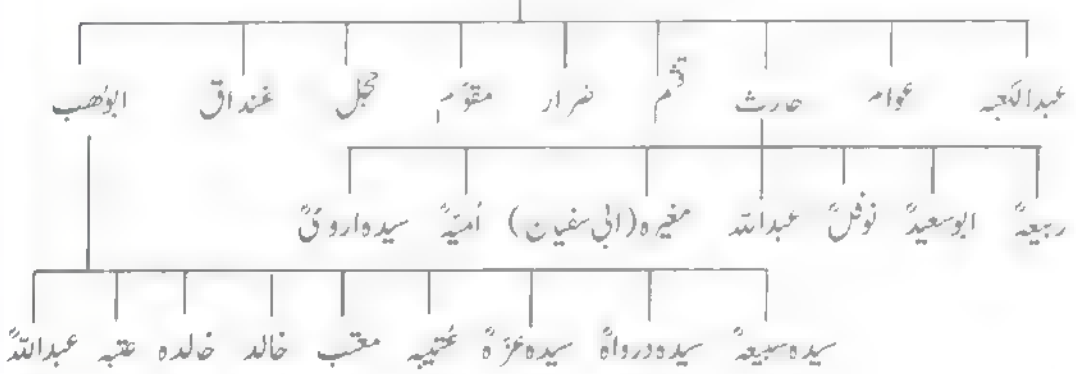 عبدالکعبہ عوام حارث قثم ضرار مقوّم حجل غنداق ابولھب
ربیعہؓ ابوسعیدؓ نوفلؓ عبداللہ مغیرہ (ابی سفیان) اُمیّہؓ سیدہ اروئیؓ
سیدہ سبیعہؓ سیدہ درواہؓ سیدہ عزّہؓ عُتیبہ معتب خالد خالدہ عتبہ عبداللہؓ